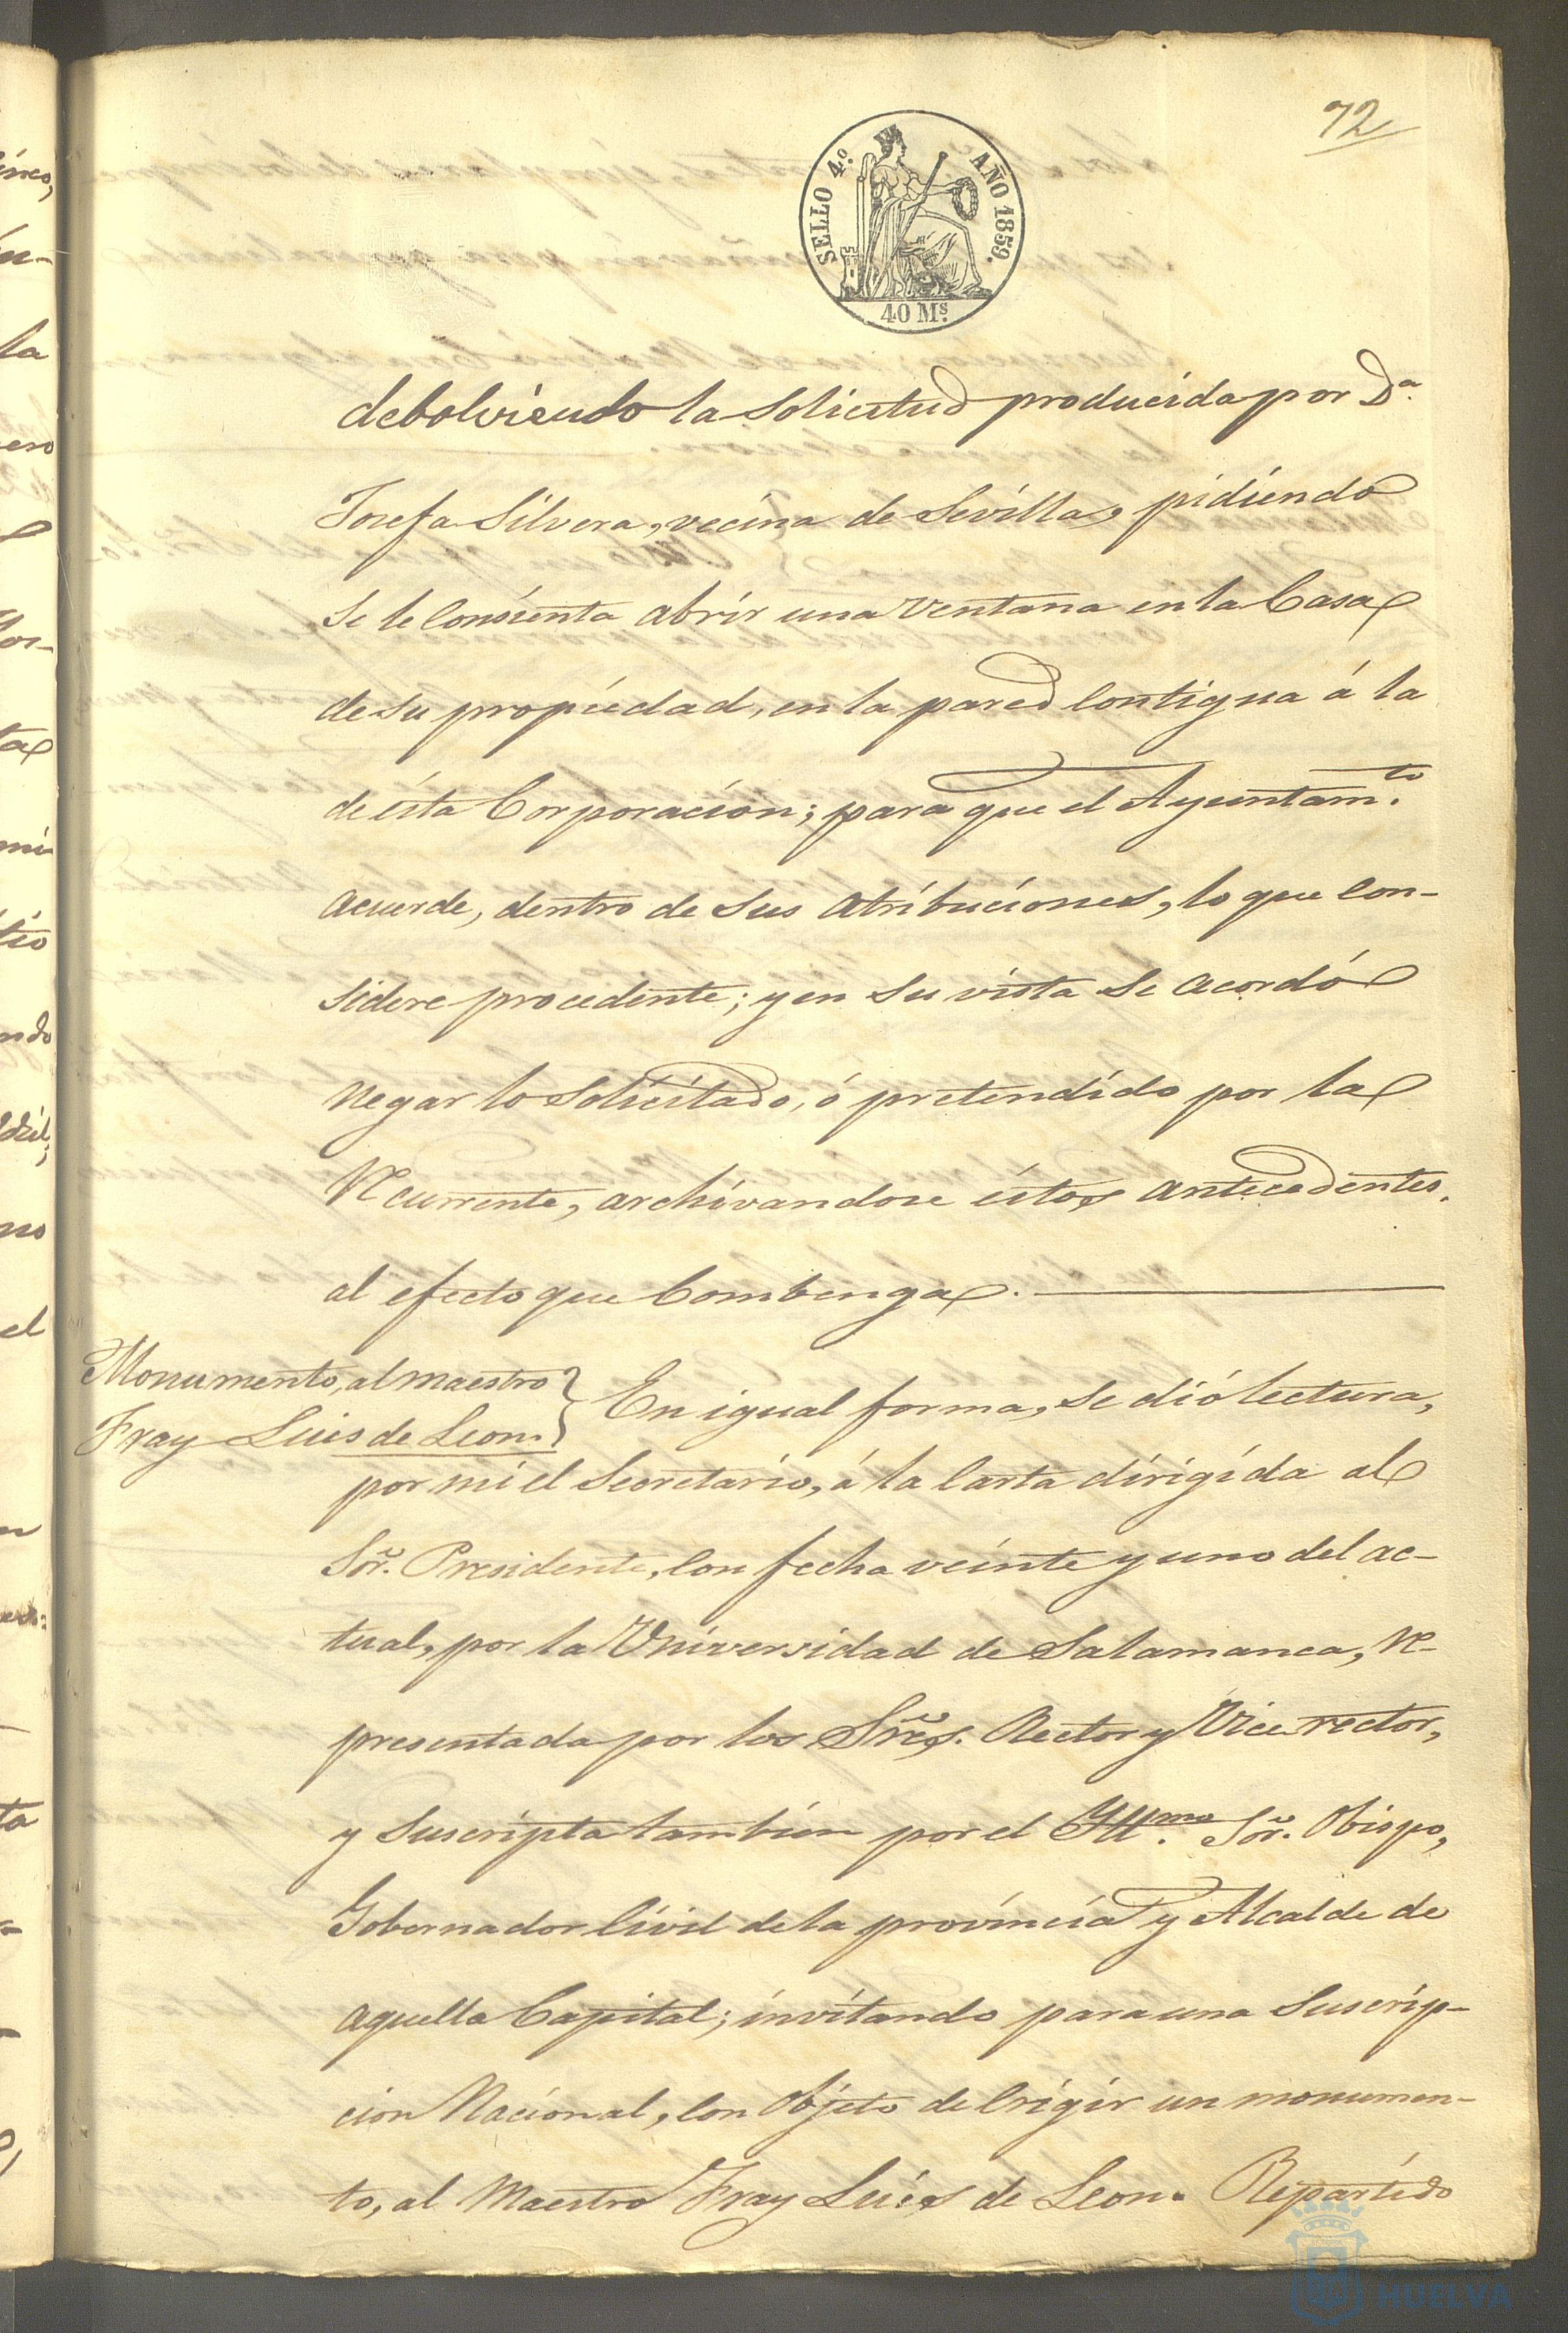 72
SELLO 4.º AÑO 1859.
40 Mˢ.
debolviendo la solicitud producida por Dª.
Josefa Silvera, vecina de Sevilla, pidiendo
se le consienta abrir una ventana en la Casa
de su propiedad, en la pared contigua á la
de ésta Corporacion; para que el Ayuntamᵗᵒ.
acuerde, dentro de sus atribuciones, lo que con-
sidere procedente; y en su vista se acordó
negar lo solicitado, ó pretendido por la
recurrente, archivandose éstos antecedentes.
al efecto que combenga.
Monumento, al maestro
Fray Luis de Leon.
En igual forma, se dió lectura,
por mi el Secretario, á la carta dirigida al
Sor. Presidente, con fecha veinte y uno del ac-
tual, por la Universidad de Salamanca, re-
presentada por los Sres. Rector y Vice rector,
y suscripta tambien por el Yllᵐᵒ. Sor. Obispo,
Gobernador Civil de la provincia y Alcalde de
aquella Capital; invitando para una suscrip-
cion Nacional, con objeto de erigir un monumen-
to, al Maestro Fray Luis de Leon. Repartido
HUELVA